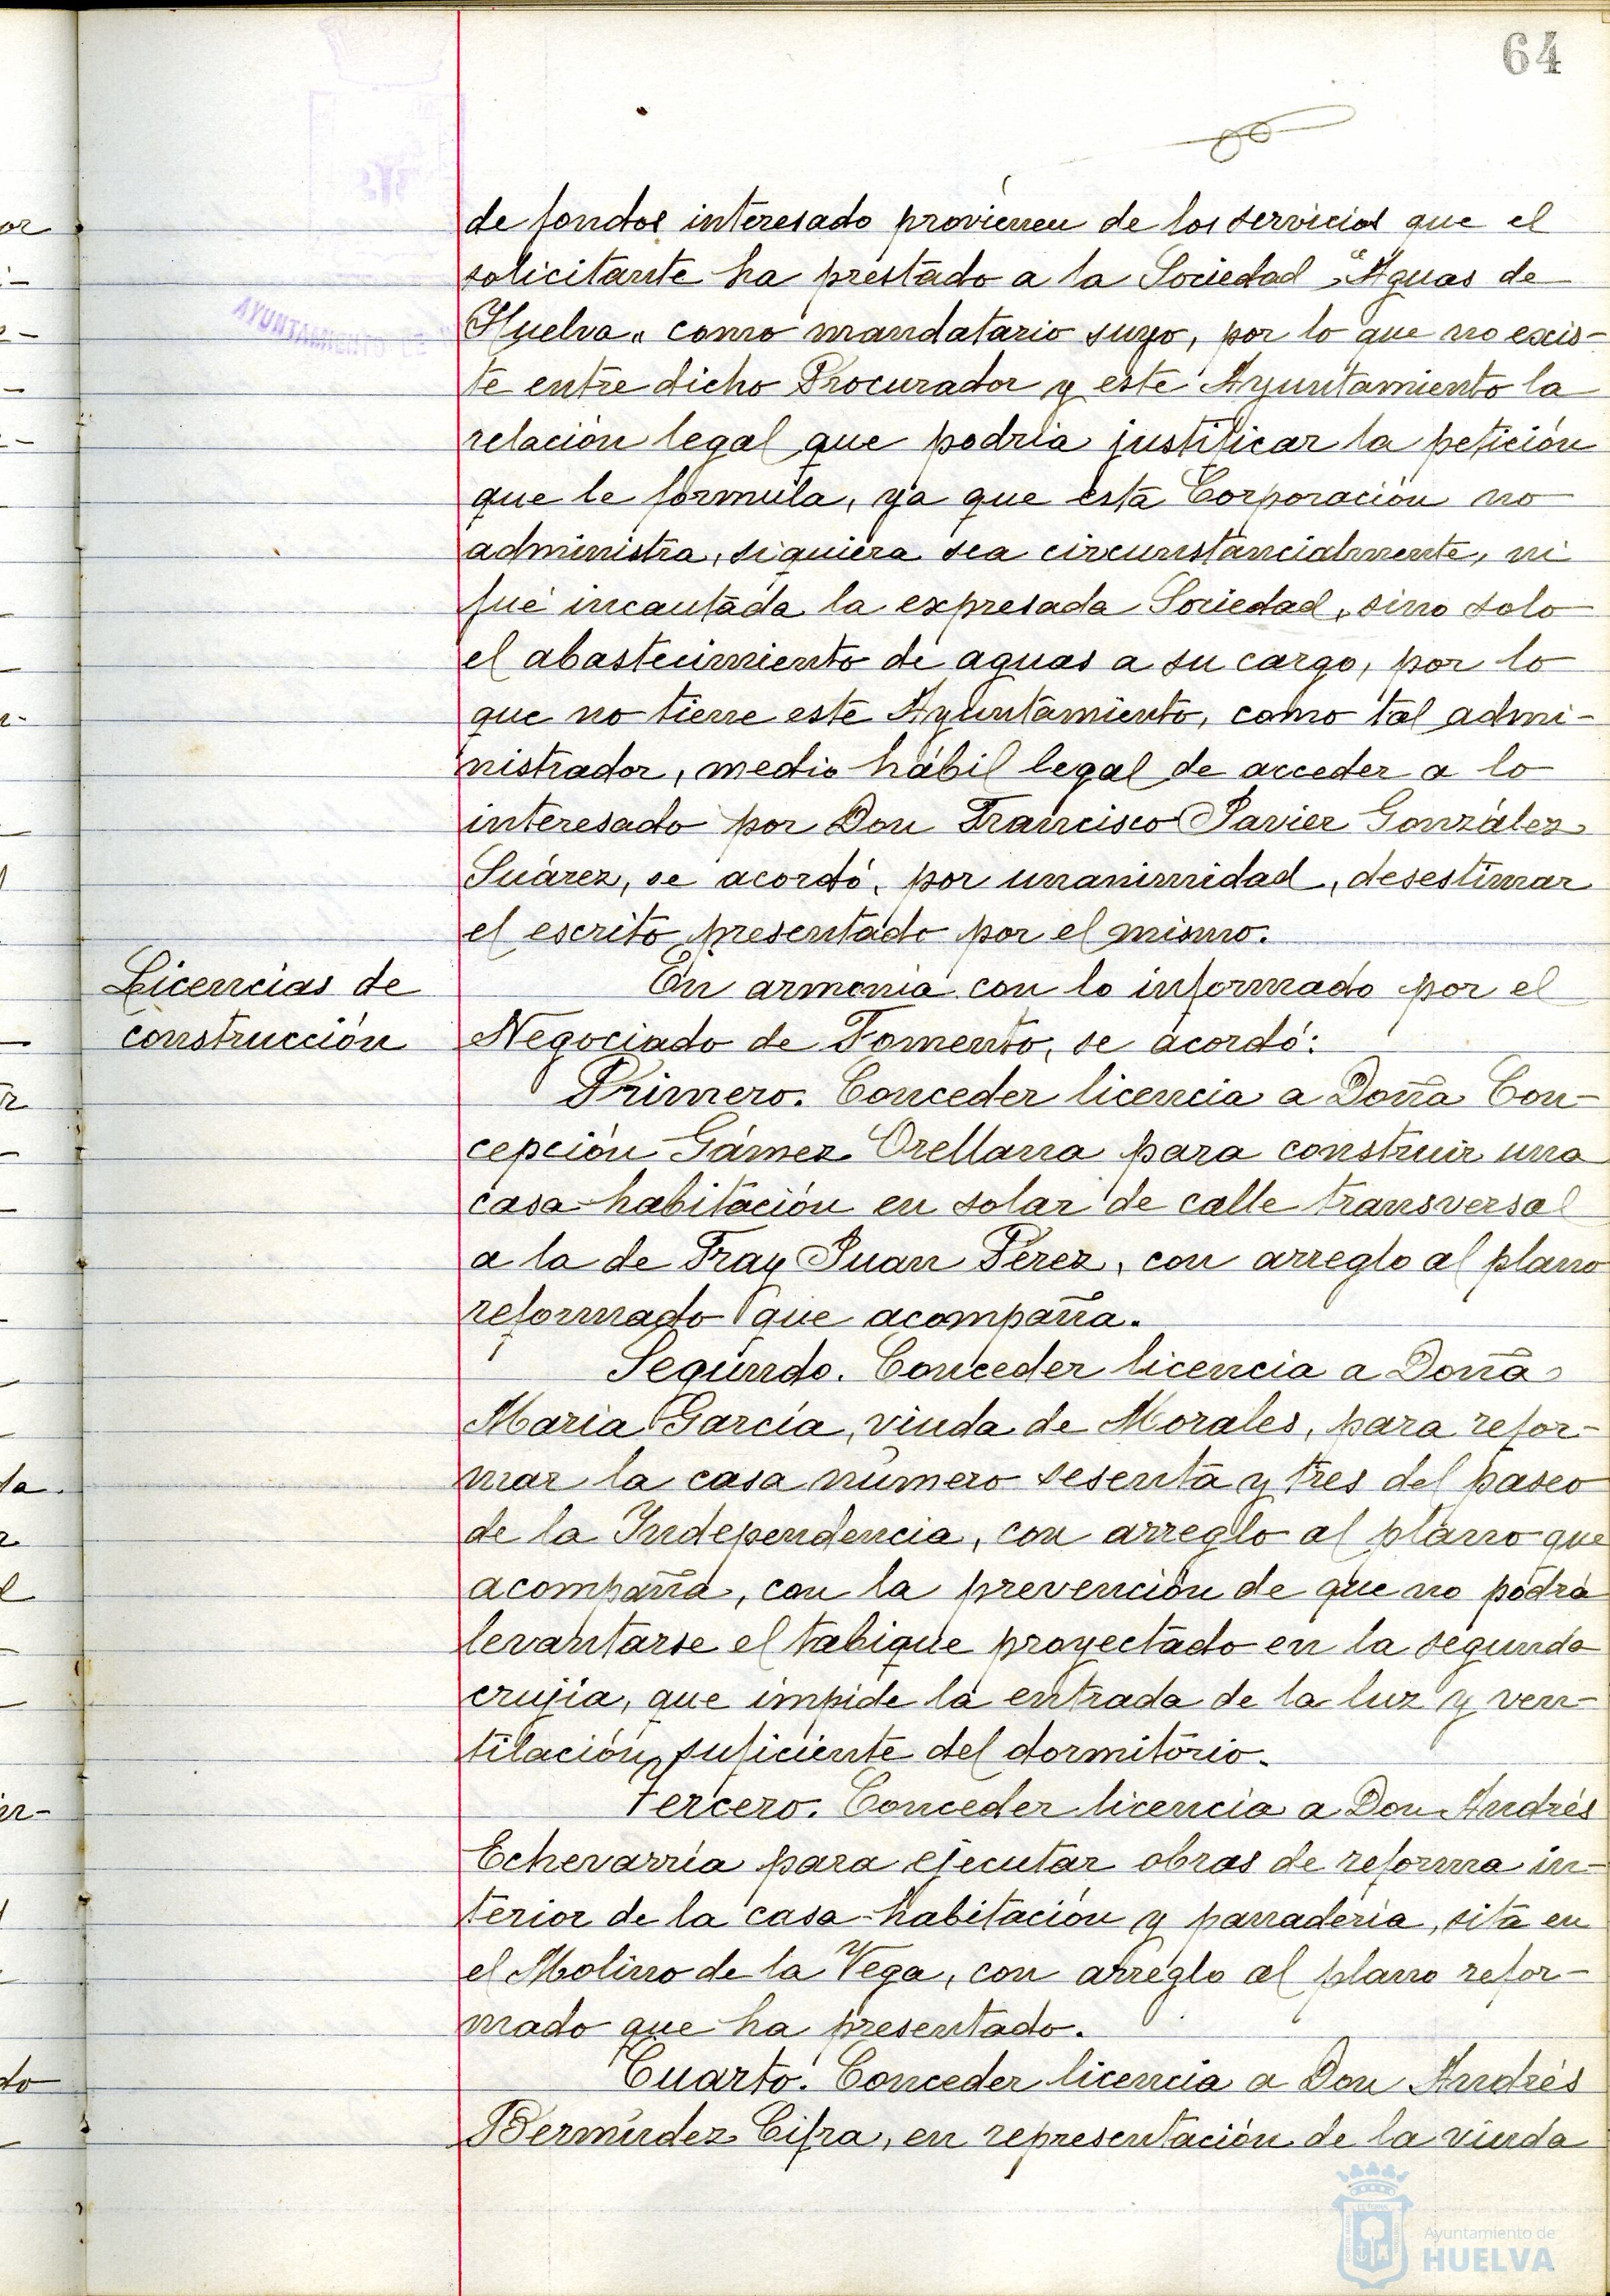 64
de fondos interesado provienen de los servicios que el
solicitante ha prestado a la Sociedad "Aguas de
Huelva" como mandatario suyo, por lo que no exis-
te entre dicho Procurador y este Ayuntamiento la
relación legal que podría justificar la petición
que le formula, ya que esta Corporación no
administra, siquiera sea circunstancialmente, ni
fué incautada la expresada Sociedad, sino solo
el abastecimiento de aguas a su cargo, por lo
que no tiene este Ayuntamiento, como tal admi-
nistrador, medio hábil legal de acceder a lo
interesado por Don Francisco Javier González
Suárez, se acordó, por unanimidad, desestimar
el escrito presentado por el mismo.
Licencias de
construcción
En armonía con lo informado por el
Negociado de Fomento, se acordó:
Primero. Conceder licencia a Doña Con-
cepción Gámez Orellana para construir una
casa-habitación en solar de calle transversal
a la de Fray Juan Pérez, con arreglo al plano
reformado que acompaña.
Segundo. Conceder licencia a Doña
María García, viuda de Morales, para refor-
mar la casa número sesenta y tres del paseo
de la Independencia, con arreglo al plano que
acompaña, con la prevención de que no podrá
levantarse el tabique proyectado en la segunda
crujía, que impide la entrada de la luz y ven-
tilación suficiente del dormitorio.
Tercero. Conceder licencia a Don Andrés
Echevarría para ejecutar obras de reforma in-
terior de la casa-habitación y panadería, sita en
el Molino de la Vega, con arreglo al plano refor-
mado que ha presentado.
Cuarto. Conceder licencia a Don Andrés
Bermúdez Cifra, en representación de la viuda
AYUNTAMIENTO DE
Ayuntamiento de
HUELVA